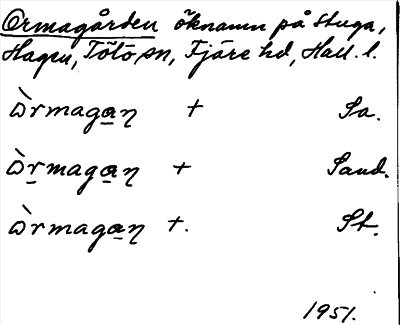 Ormagården öknamn på stuga,
Hagen, Tölö sn, Fjäre hd, Hall. l.
ὼrmagan̡ + Sa.
ὼr̲maga̲n̡ + Sand.
ὼrmaga̲n̡ +. St.
1951.